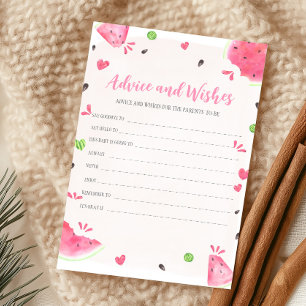 Advice and Wishes
ADVICE AND WISHES FOR THE PARENTS TO BE
SAY GOODBYE TO
SAY HELLO TO
ALWAYS
NEVER
ENJOY
REMEMBER TO